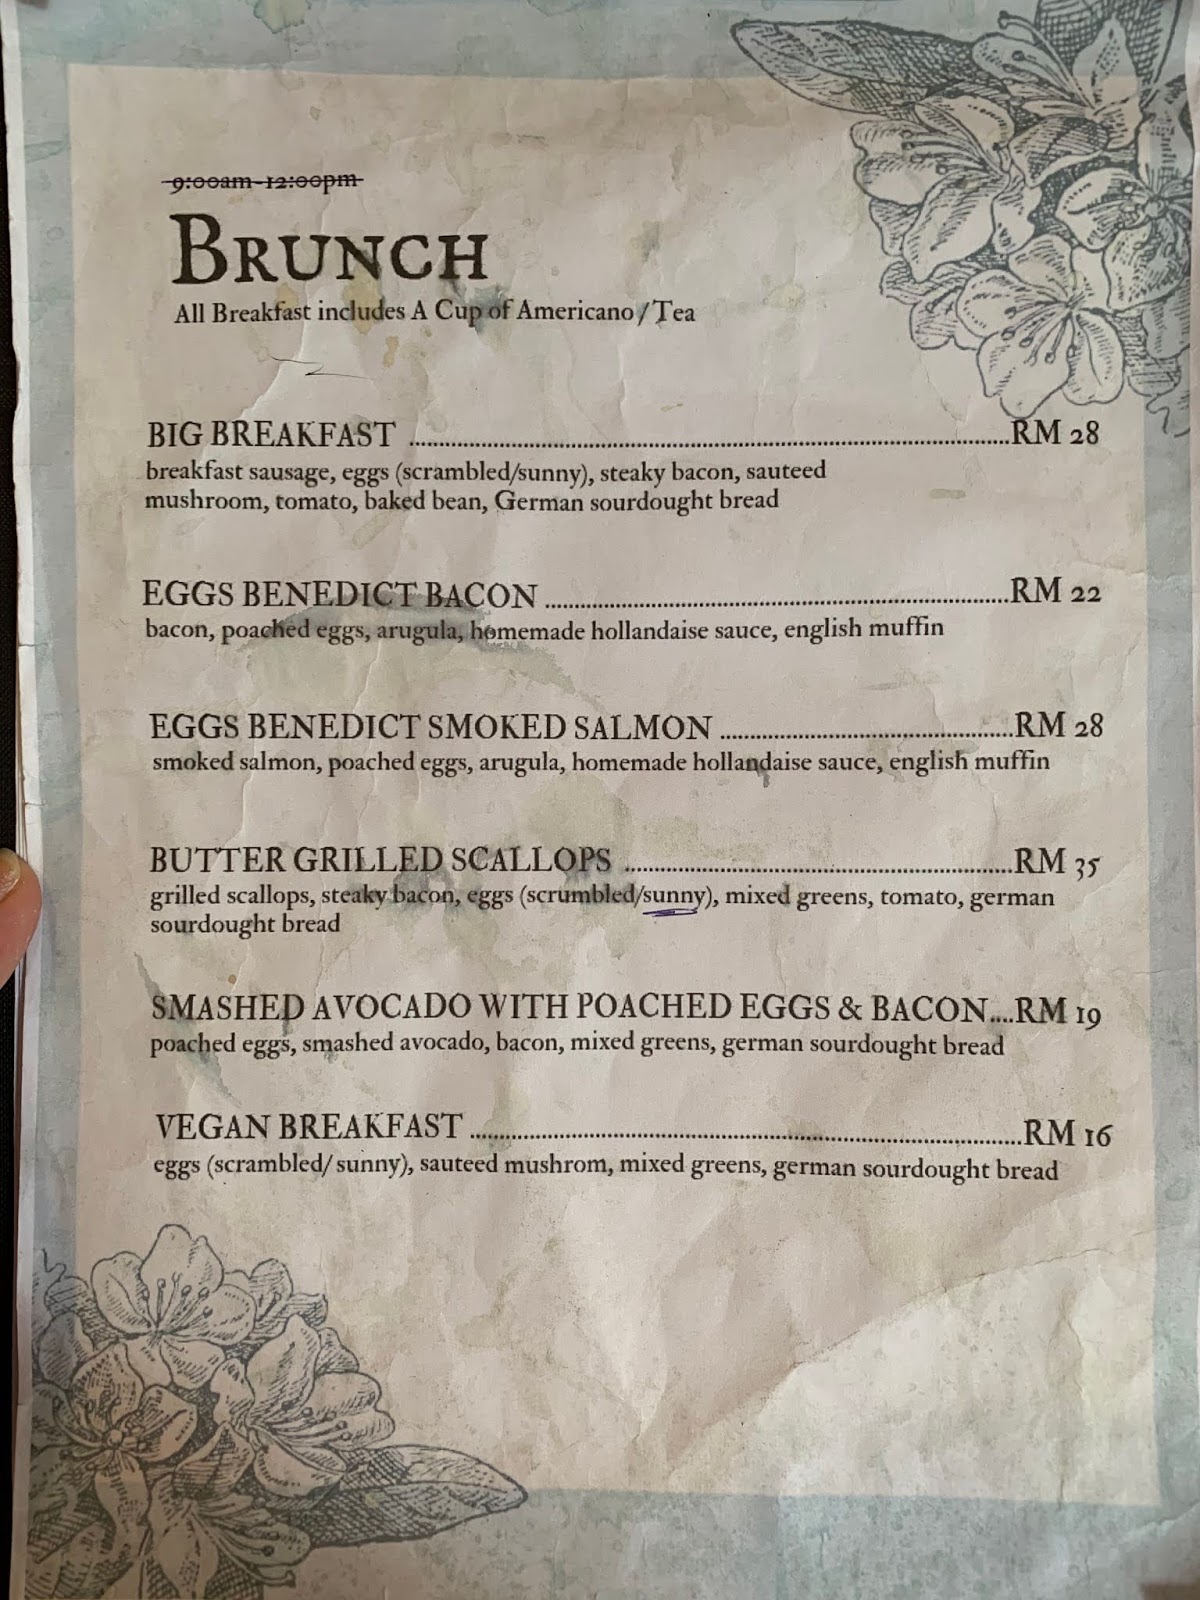 9:00am-12:00pm
BRUNCH
All Breakfast includes A Cup of Americano / Tea
BIG BREAKFAST ........................................ RM 28
breakfast sausage, eggs (scrambled/sunny), steaky bacon, sauteed
mushroom, tomato, baked bean, German sourdought bread
EGGS BENEDICT BACON ........................................ RM 22
bacon, poached eggs, arugula, homemade hollandaise sauce, english muffin
EGGS BENEDICT SMOKED SALMON ........................................ RM 28
smoked salmon, poached eggs, arugula, homemade hollandaise sauce, english muffin
BUTTER GRILLED SCALLOPS ........................................ RM 35
grilled scallops, steaky bacon, eggs (scrumbled/sunny), mixed greens, tomato, german
sourdought bread
SMASHED AVOCADO WITH POACHED EGGS & BACON....RM 19
poached eggs, smashed avocado, bacon, mixed greens, german sourdought bread
VEGAN BREAKFAST ........................................ RM 16
eggs (scrambled/ sunny), sauteed mushrom, mixed greens, german sourdought bread